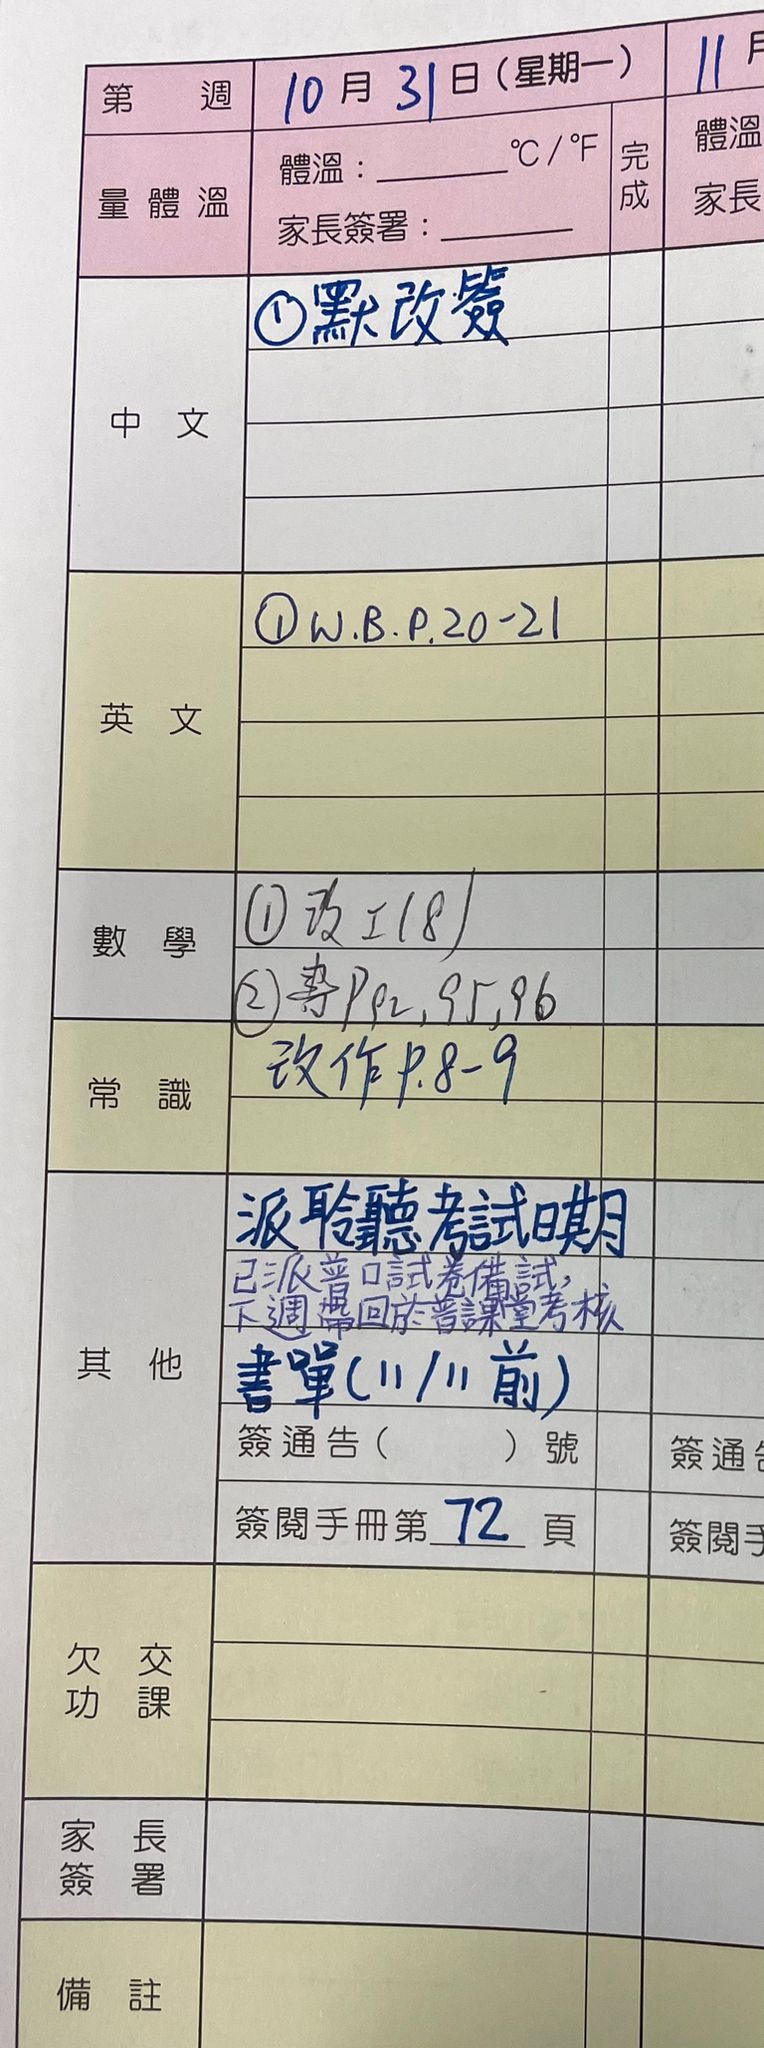 第 週 10月31日(星期一) 11月
量體溫 體溫：______°C/°F 完成 體溫
家長簽署：______ 家長
中文 ①默改簽
英文 ①W.B.P.20-21
數學 ①改工(8)
②書P92,95,96
常識 改作P.8-9
其他 派聆聽考試日期
已派普口試卷備試,
下週需回於普課堂考核
書單(11/11前)
簽通告( )號 簽通告
簽閱手冊第72頁 簽閱手
欠交功課
家長簽署
備註